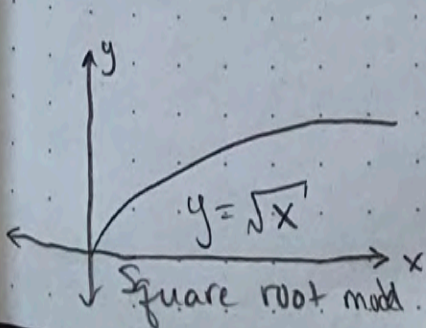 y
y = √x
x
Square root modd.